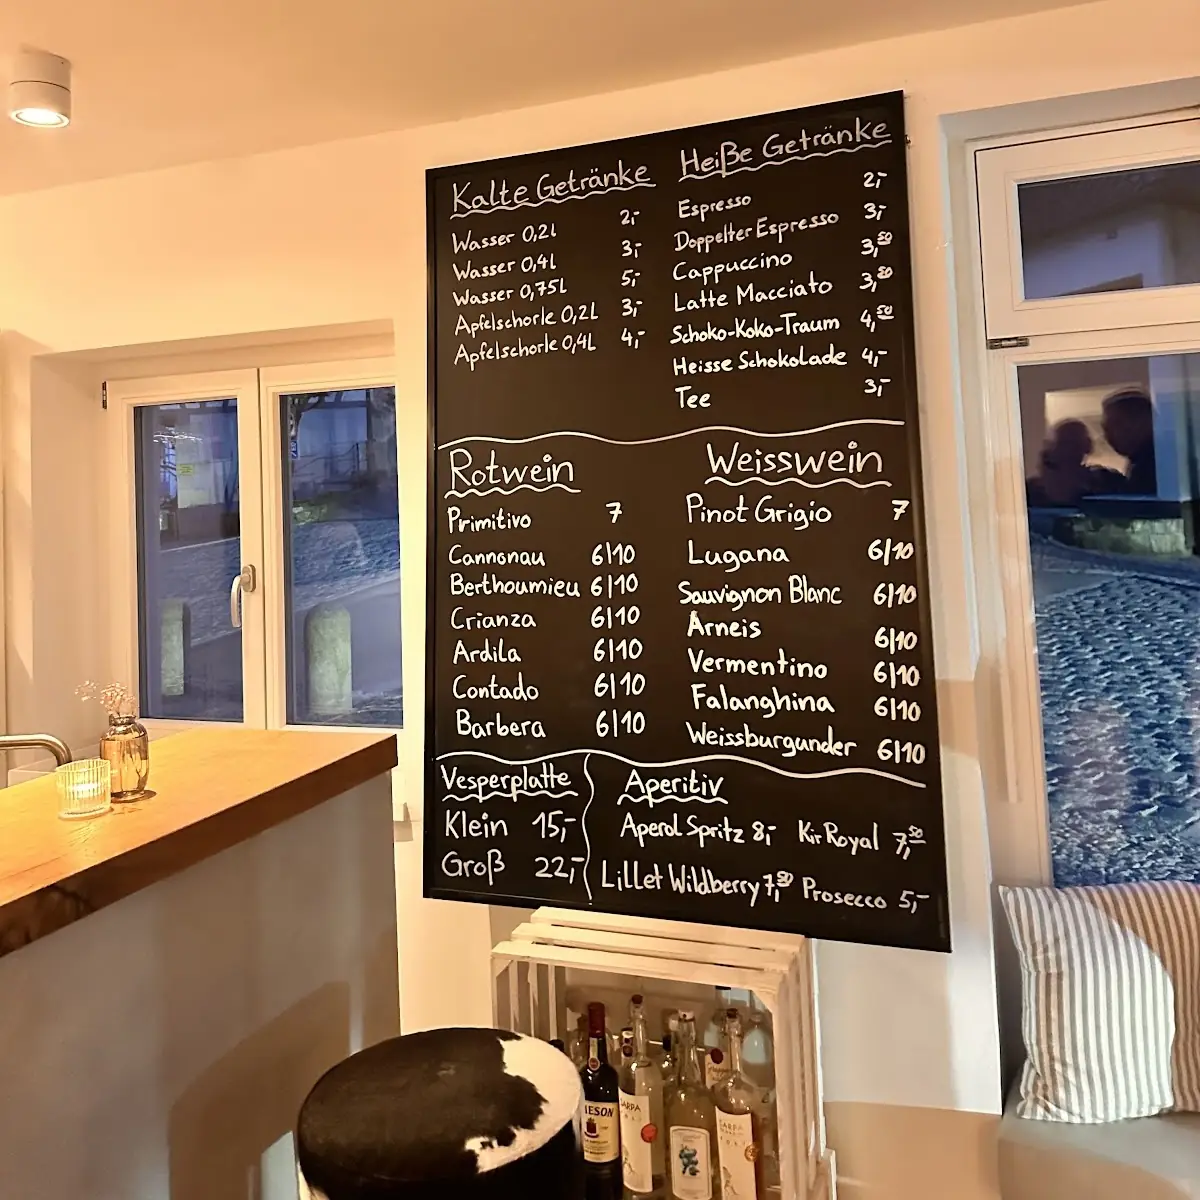 Kalte Getränke
Wasser 0,2l 2,-
Wasser 0,4l 3,-
Wasser 0,75l 5,-
Apfelschorle 0,2l 3,-
Apfelschorle 0,4l 4,-
Heiße Getränke
Espresso 2,-
Doppelter Espresso 3,-
Cappuccino 3,50
Latte Macciato 3,80
Schoko-Koko-Traum 4,50
Heisse Schokolade 4,-
Tee 3,-
Rotwein
Primitivo 7
Cannonau 6/10
Berthoumieu 6/10
Crianza 6/10
Ardila 6/10
Contado 6/10
Barbera 6/10
Weisswein
Pinot Grigio 7
Lugana 6/10
Sauvignon Blanc 6/10
Arneis 6/10
Vermentino 6/10
Falanghina 6/10
Weissburgunder 6/10
Vesperplatte
Klein 15,-
Groß 22,-
Aperitiv
Aperol Spritz 8,- Kir Royal 7,50
Lillet Wildberry 7,50 Prosecco 5,-